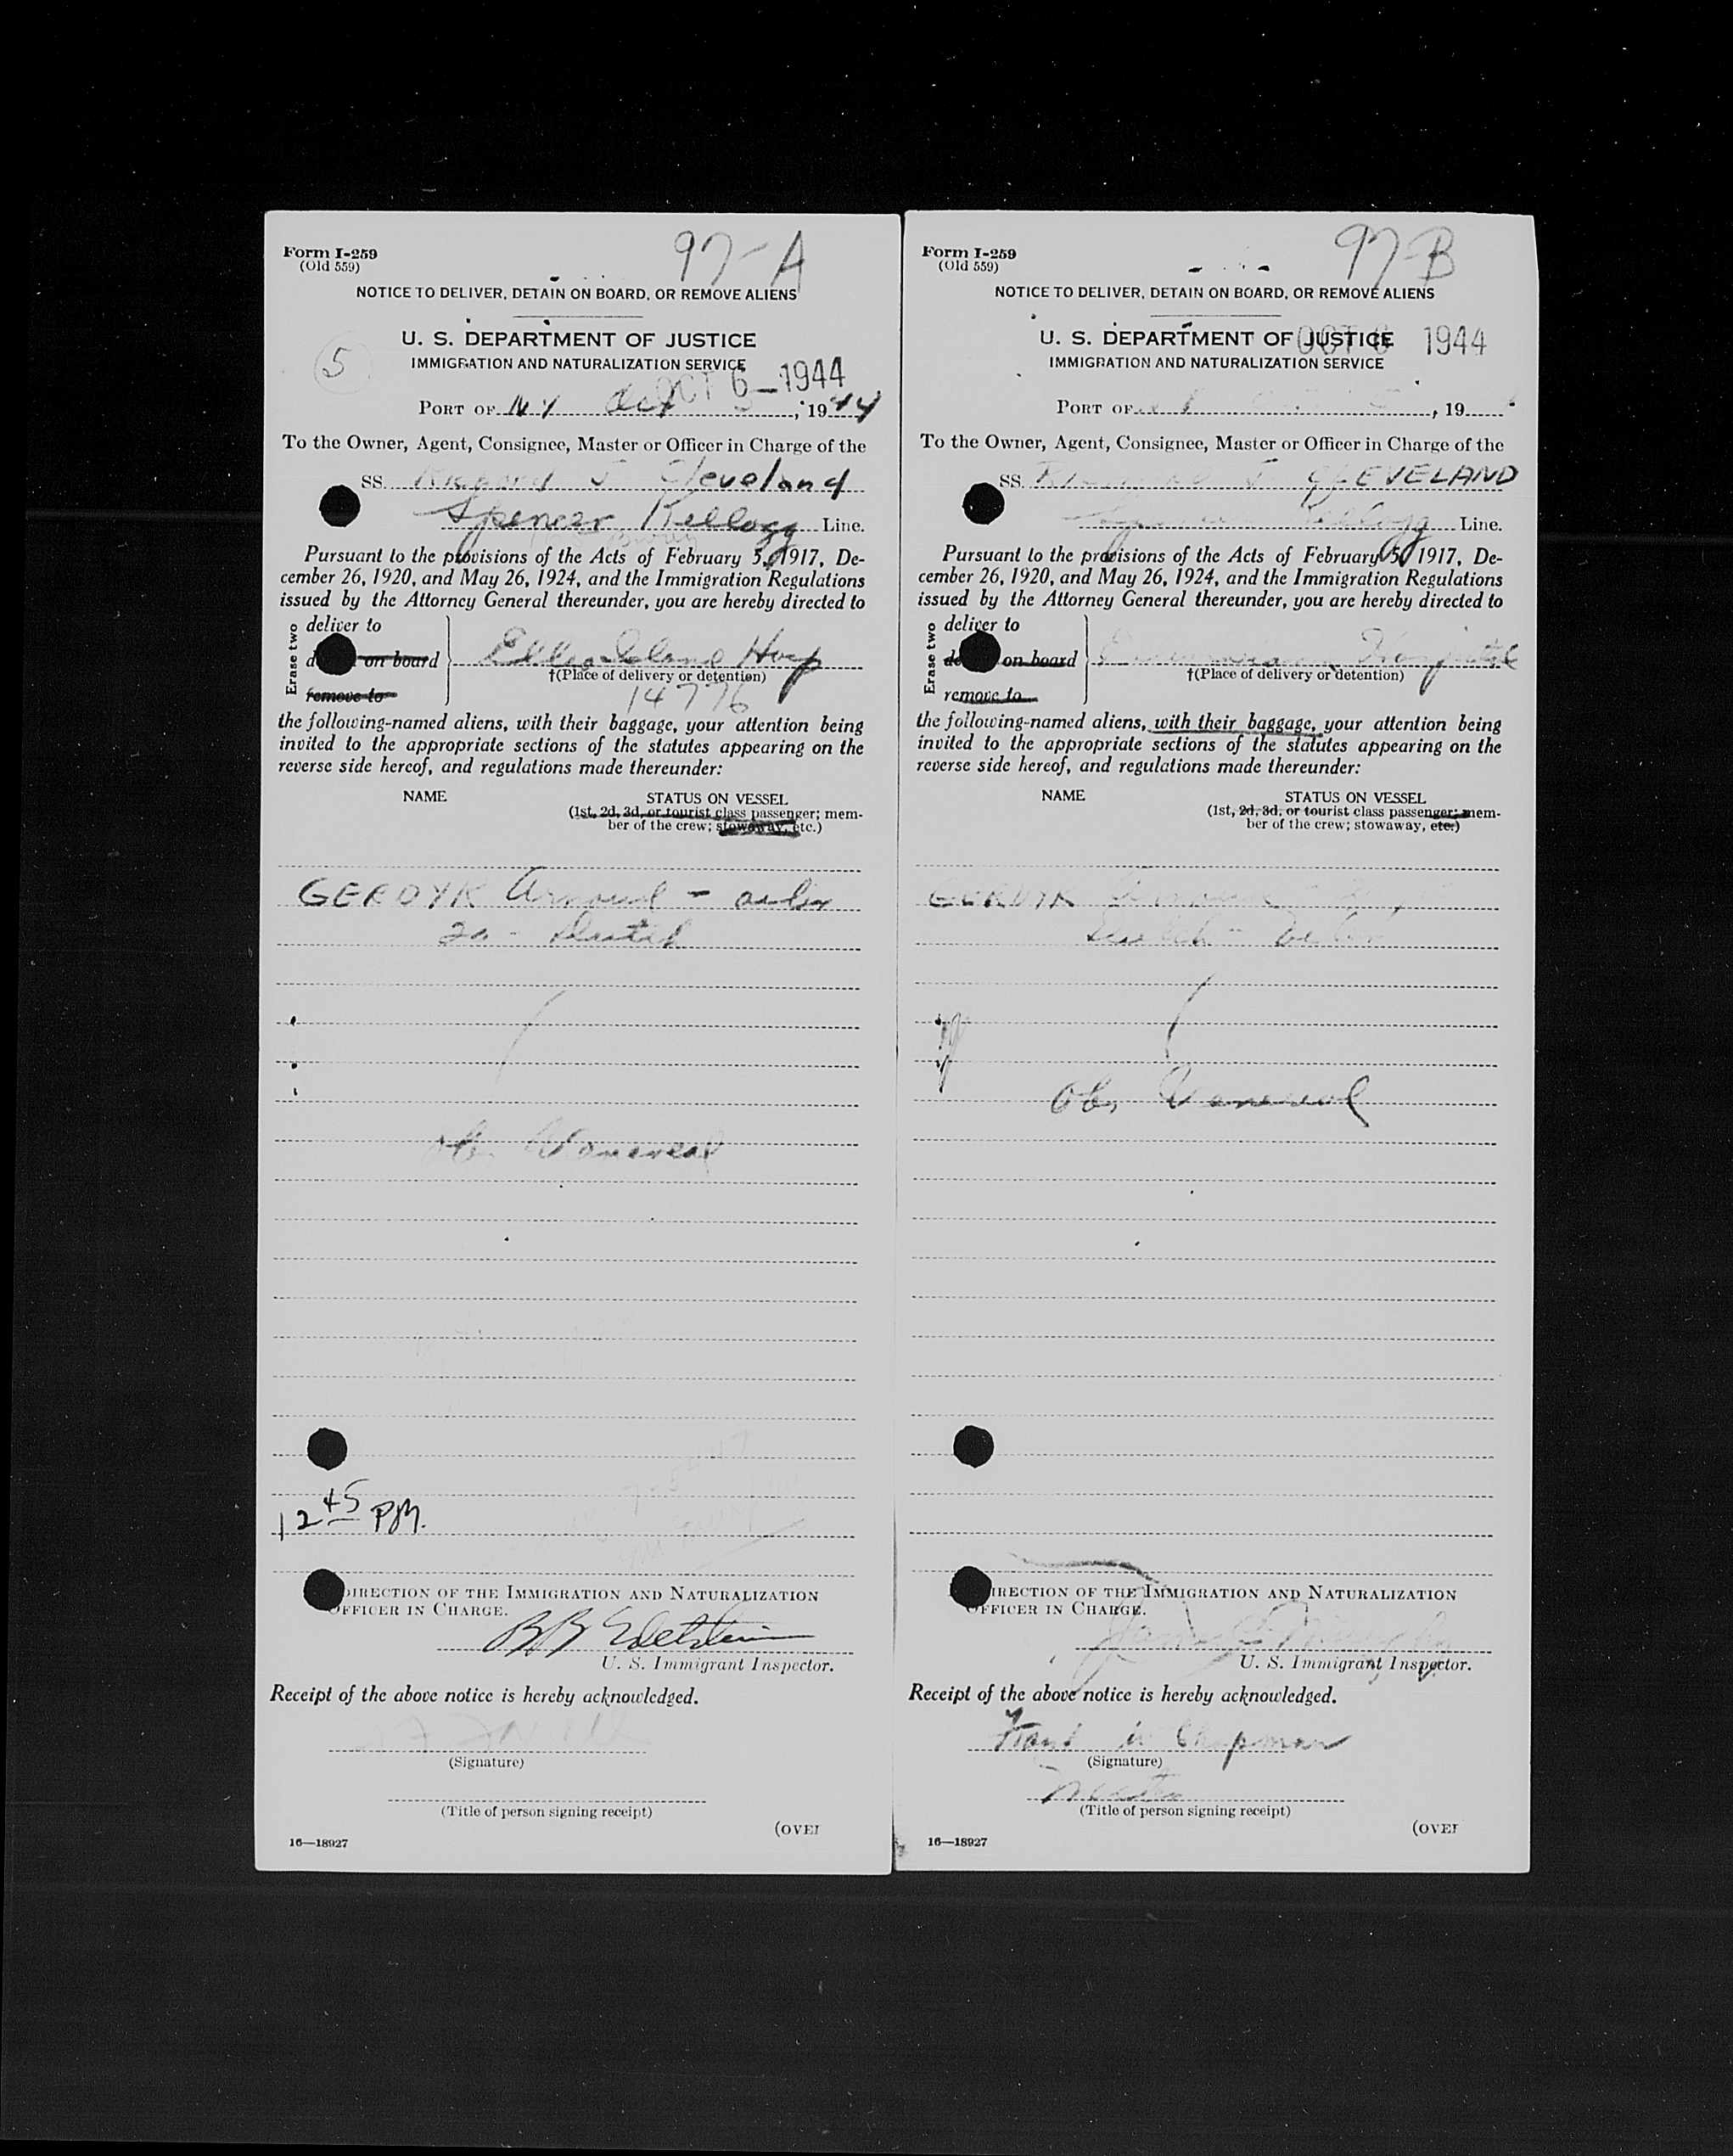 97-A
Form I-259
(Old 559)
NOTICE TO DELIVER, DETAIN ON BOARD, OR REMOVE ALIENS
U. S. DEPARTMENT OF JUSTICE
5
IMMIGRATION AND NATURALIZATION SERVICE
OCT 6 - 1944
PORT OF NY Oct 5, 1944
To the Owner, Agent, Consignee, Master or Officer in Charge of the
SS. Richard J Cleveland
Spencer Kellogg Line.
Pursuant to the provisions of the Acts of February 5, 1917, De-
cember 26, 1920, and May 26, 1924, and the Immigration Regulations
issued by the Attorney General thereunder, you are hereby directed to
Erase two
deliver to
on board
Ellis Island Hosp
†(Place of delivery or detention)
remove to
14776
the following-named aliens, with their baggage, your attention being
invited to the appropriate sections of the statutes appearing on the
reverse side hereof, and regulations made thereunder:
NAME STATUS ON VESSEL
(1st, 2d, 3d, or tourist class passenger; mem-
ber of the crew; stowaway, etc.)
GERDYK Arnoud - oiler
20 - Dutch
Venereal
12 45 PM.
DIRECTION OF THE IMMIGRATION AND NATURALIZATION
OFFICER IN CHARGE.
B B Edelstein
U. S. Immigrant Inspector.
Receipt of the above notice is hereby acknowledged.
(Signature)
(Title of person signing receipt)
(OVER
16—18927
97-B
Form I-259
(Old 559)
NOTICE TO DELIVER, DETAIN ON BOARD, OR REMOVE ALIENS
U. S. DEPARTMENT OF JUSTICE
OCT 6 1944
IMMIGRATION AND NATURALIZATION SERVICE
PORT OF , 19
To the Owner, Agent, Consignee, Master or Officer in Charge of the
SS. CLEVELAND
Kellogg Line.
Pursuant to the provisions of the Acts of February 5, 1917, De-
cember 26, 1920, and May 26, 1924, and the Immigration Regulations
issued by the Attorney General thereunder, you are hereby directed to
Erase two
deliver to
on board
Hospital
†(Place of delivery or detention)
remove to
the following-named aliens, with their baggage, your attention being
invited to the appropriate sections of the statutes appearing on the
reverse side hereof, and regulations made thereunder:
NAME STATUS ON VESSEL
(1st, 2d, 3d, or tourist class passenger; mem-
ber of the crew; stowaway, etc.)
GERDYK
Dutch
Obs Venereal
DIRECTION OF THE IMMIGRATION AND NATURALIZATION
OFFICER IN CHARGE.
U. S. Immigrant Inspector.
Receipt of the above notice is hereby acknowledged.
Chapman
(Signature)
Master
(Title of person signing receipt)
(OVER
16—18927